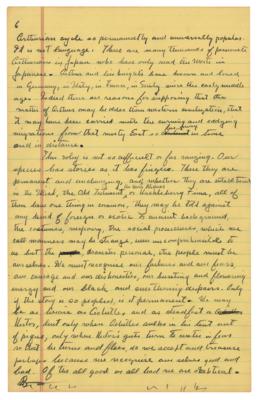 6
Arthurian cycle so permanently and universally popular.
It is not language. There are many thousands of passionate
Arthurians in Japan who have only read the stories in
Japanese. Arthur and his knights have been known and loved
in Germany, in Italy, in France, in Sicily since the early middle
ages. Indeed there are reasons for supposing that the
matter of Arthur may be older than western civilization, that
it may have been carried with the surging and edging
migrations from that misty East so far away in time
and in distance.
This role is not so difficult or far ranging. Our
species has stories as it has people. There they are,
permanent and unchanging, and whether they are
in the Iliad, the Old Testament, or Huckleberry Finn, all of
them have one thing in common, they may be set against
any kind of foreign or exotic or ancient background,
the costumes, weapons, the social procedures, which we
call manners may be strange, even incomprehensible to
us but the people must be
ourselves. We must recognize our failures and our fears,
our courage and our dishonesties, our bursting and flowering
energy and our black and smothering despairs. Only
if the story is so peopled, is it permanent. We may
be as brave as Achilles, and as steadfast a
Hector, but only when Achilles sulks in his tent out
of pique, only when Hector's guts turn to water in fear
so that he turns and flees, do we accept and treasure
perhaps because we recognize our selves good and
bad. Of the all good or all bad we are skeptical.